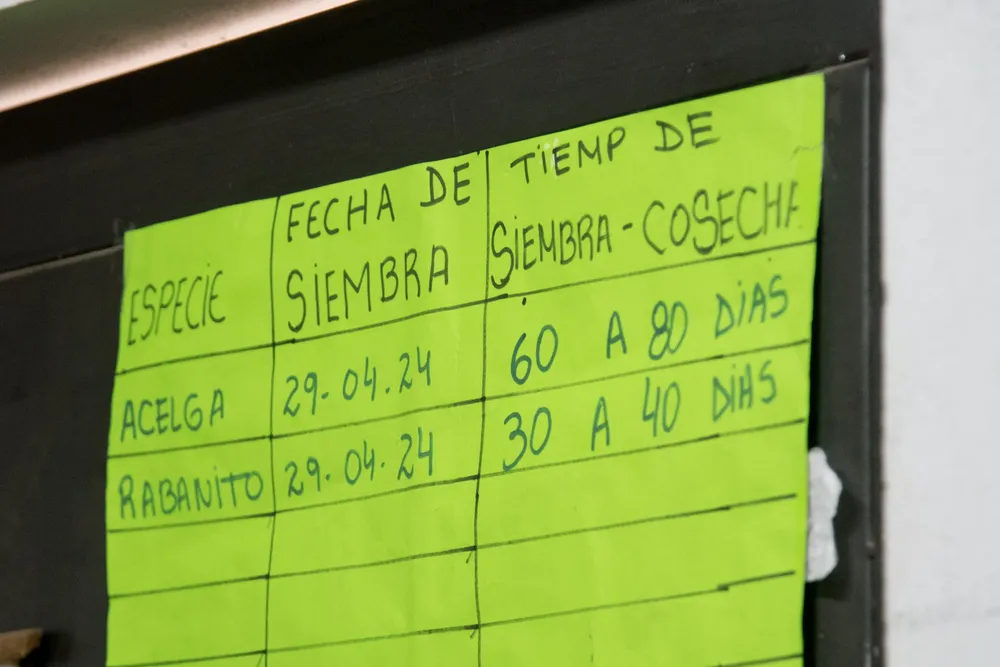 ESPECIE
FECHA DE
SIEMBRA
TIEMP DE
SIEMBRA - COSECHA
ACELGA 29.04.24 60 A 80 DIAS
RABANITO 29.04.24 30 A 40 DIAS